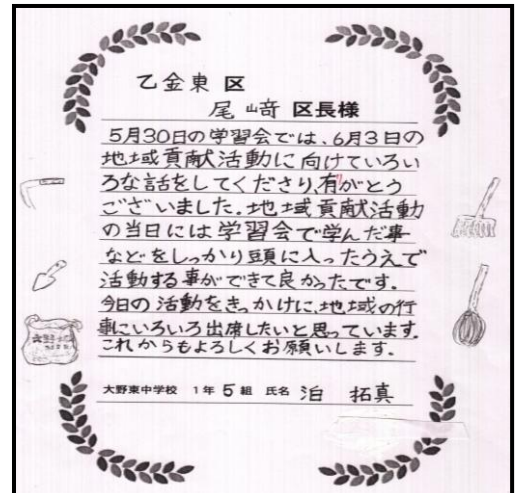 乙金東 区
尾﨑 区長様
5月30日の学習会では、6月3日の
地域貢献活動に向けていろい
ろな話をしてくださり、有がとう
ございました。地域貢献活動
の当日には学習会で学んだ事
などをしっかり頭に入ったうえで
活動する事ができて良かったです。
今日の活動をきっかけに、地域の行
事にいろいろ出席したいと思っています。
これからもよろしくお願いします。
大野東中学校 1年 5組 氏名 泊 拓真